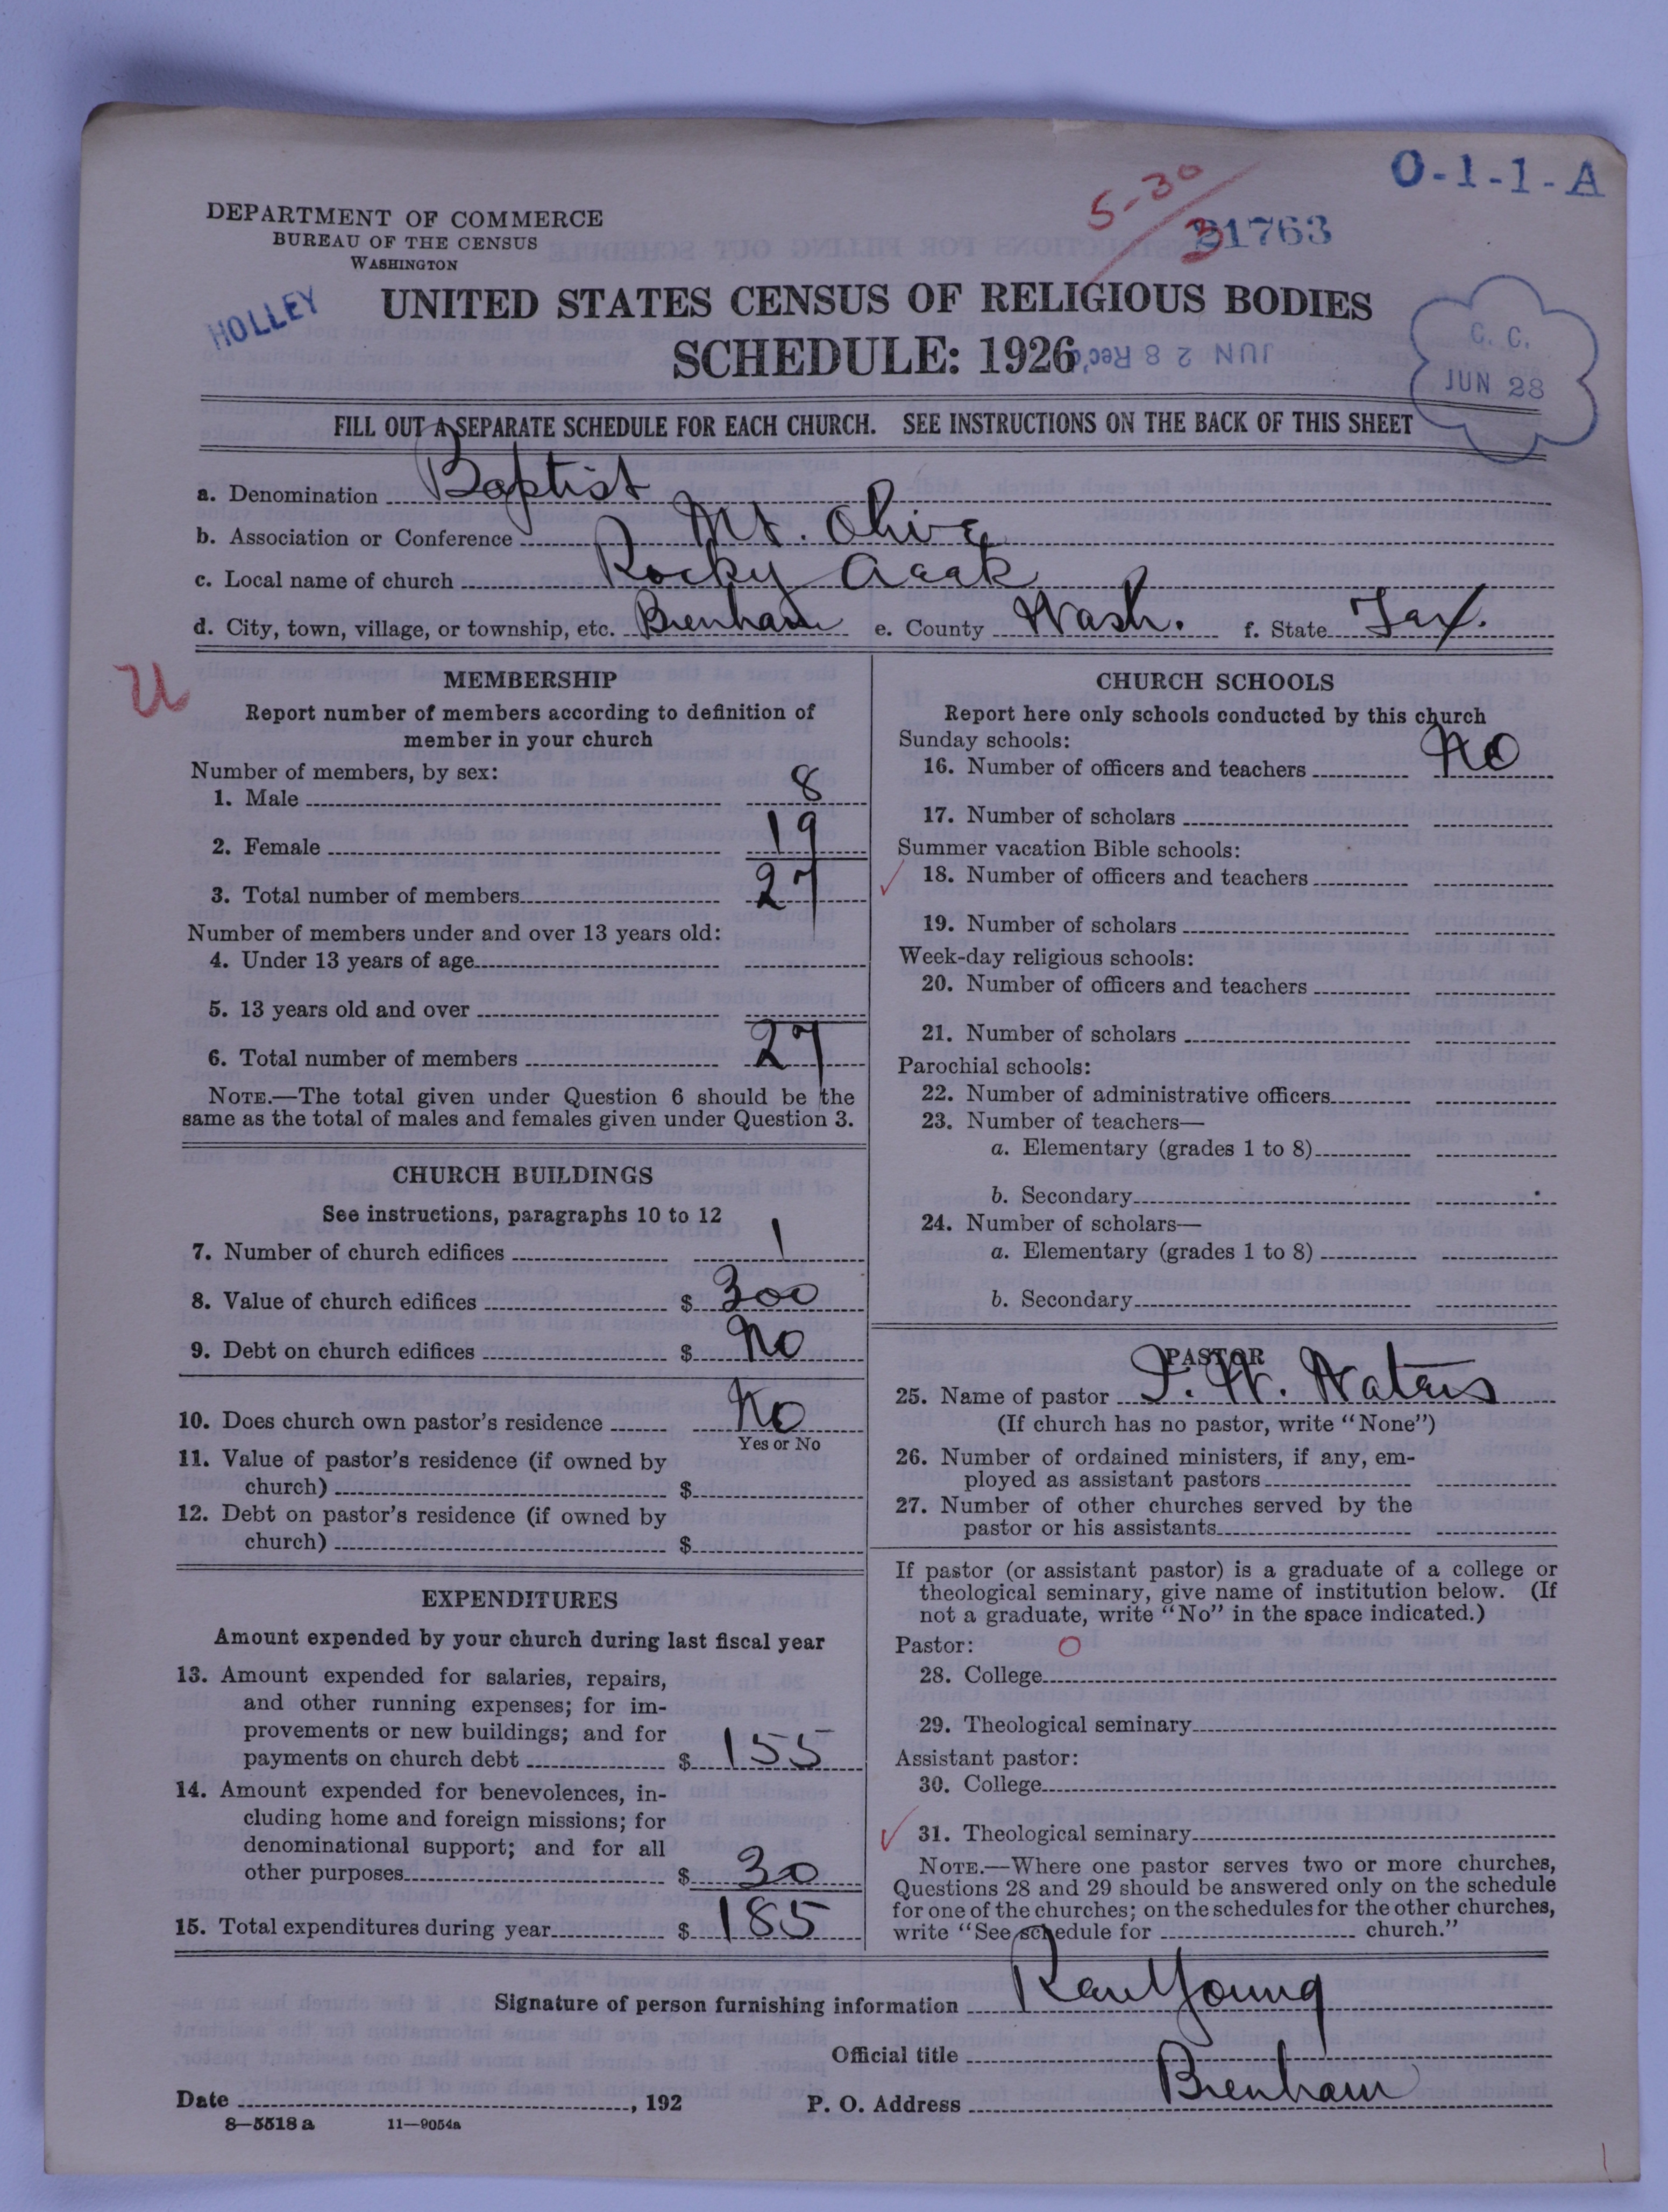 O-1-1-A
5-30
3
21763
DEPARTMENT OF COMMERCE
BUREAU OF THE CENSUS
WASHINGTON
HOLLEY
UNITED STATES CENSUS OF RELIGIOUS BODIES
SCHEDULE: 1926
JUN 28 Rec'd
C. C.
JUN 28
FILL OUT A SEPARATE SCHEDULE FOR EACH CHURCH. SEE INSTRUCTIONS ON THE BACK OF THIS SHEET
a. Denomination Baptist
b. Association or Conference Mt. Olive
c. Local name of church Rocky
d. City, town, village, or township, etc. Brenham e. County Wash. f. State Tex.
U
MEMBERSHIP
Report number of members according to definition of
member in your church
Number of members, by sex:
1. Male 8
2. Female 19
3. Total number of members 27
Number of members under and over 13 years old:
4. Under 13 years of age
5. 13 years old and over
6. Total number of members 27
NOTE.—The total given under Question 6 should be the
same as the total of males and females given under Question 3.
CHURCH BUILDINGS
See instructions, paragraphs 10 to 12
7. Number of church edifices 1
8. Value of church edifices $ 300
9. Debt on church edifices $ No
10. Does church own pastor's residence No
Yes or No
11. Value of pastor's residence (if owned by
church) $
12. Debt on pastor's residence (if owned by
church) $
EXPENDITURES
Amount expended by your church during last fiscal year
13. Amount expended for salaries, repairs,
and other running expenses; for im-
provements or new buildings; and for
payments on church debt $ 155
14. Amount expended for benevolences, in-
cluding home and foreign missions; for
denominational support; and for all
other purposes $ 30
15. Total expenditures during year $ 185
CHURCH SCHOOLS
Report here only schools conducted by this church
Sunday schools:
16. Number of officers and teachers No
17. Number of scholars
Summer vacation Bible schools:
18. Number of officers and teachers
19. Number of scholars
Week-day religious schools:
20. Number of officers and teachers
21. Number of scholars
Parochial schools:
22. Number of administrative officers
23. Number of teachers—
a. Elementary (grades 1 to 8)
b. Secondary
24. Number of scholars—
a. Elementary (grades 1 to 8)
b. Secondary
PASTOR
25. Name of pastor W. Waters
(If church has no pastor, write "None")
26. Number of ordained ministers, if any, em-
ployed as assistant pastors
27. Number of other churches served by the
pastor or his assistants
If pastor (or assistant pastor) is a graduate of a college or
theological seminary, give name of institution below. (If
not a graduate, write "No" in the space indicated.)
Pastor: O
28. College
29. Theological seminary
Assistant pastor:
30. College
31. Theological seminary
NOTE.—Where one pastor serves two or more churches,
Questions 28 and 29 should be answered only on the schedule
for one of the churches; on the schedules for the other churches,
write "See schedule for church."
Signature of person furnishing information Young
Official title
Date , 192 P. O. Address Brenham
8—5518 a 11—9054a